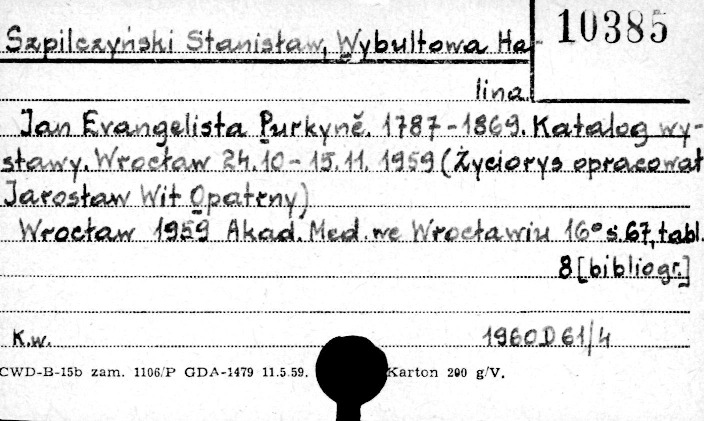 10385
Szpilczyński Stanisław, Wybultowa Ha-
lina.
Jan Evangelista Purkyně. 1787-1869. Katalog wy-
stawy. Wrocław 24.10-15.11.1959 (Życiorys opracował
Jarosław Wit Opatrny)
Wrocław 1959 Akad. Med. we Wrocławiu 16° s. 67, tabl.
8 [bibliogr.]
K.w. 1960 D 61/4
CWD-B-15b zam. 1106/P GDA-1479 11.5.59. Karton 200 g/V.